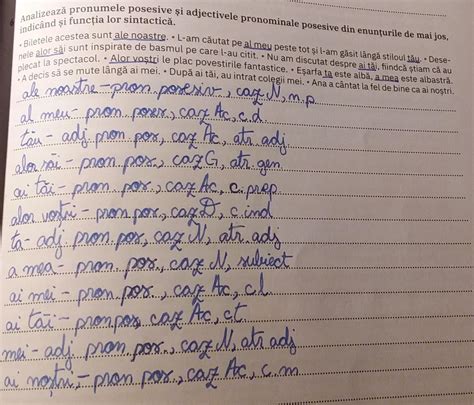 Analizează pronumele posesive și adjectivele pronominale posesive din enunțurile de mai jos,
indicând și funcția lor sintactică.
• Biletele acestea sunt ale noastre. • L-am căutat pe al meu peste tot și l-am găsit lângă stiloul tău. • Dese-
nele alor săi sunt inspirate de basmul pe care l-au citit. • Nu am discutat despre ai tăi, fiindcă știam că au
plecat la spectacol. • Alor voștri le plac povestirile fantastice. • Eșarfa ta este albă, a mea este albastră.
• A decis să se mute lângă ai mei. • După ai tăi, au intrat colegii mei. • Ana a cântat la fel de bine ca ai noștri.
ale noastre - pron. posesiv, caz N, n.p.
al meu - pron. poses, caz Ac, c.d.
tău - adj. pron. pos, caz Ac, atr. adj
alor săi - pron. pos., caz G, atr. gen
ai tăi - pron. pos, caz Ac, c. prep
alor voștri - pron por, caz D, c. ind
ta - adj. pron. pos, caz N, atr. adj
a mea - pron. pos, caz N, subiect
ai mei - pron. pos., caz Ac, c.l.
ai tăi - pron pos, caz Ac, ct
mei - adj. pron. pos., caz N, atr adj
ai noștri, - pron pos, caz Ac, c. m